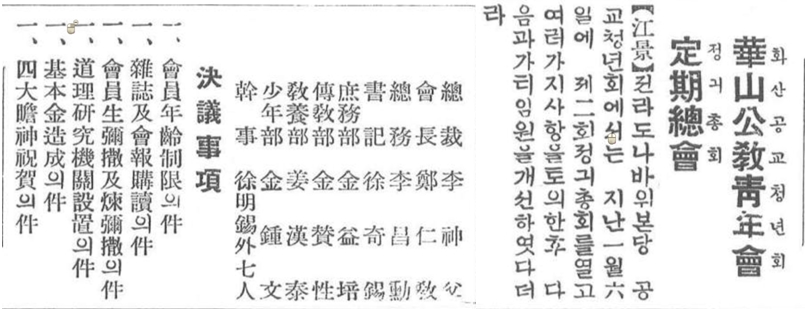 華山公敎靑年會
화산공교청년회
定期總會
정긔총회
【江景】젼라도나바위본당 공
교청년회에서는 지난一월六
일에 제二회정긔총회를열고
여러가지사항을토의한후 다
음과가티임원을개선하엿다더
라
總裁 李神父
會長 鄭仁敎
總務 李昌勳
書記 徐奇錫
庶務部 金益培
傳敎部 金賛性
敎養部 姜漢泰
少年部 金鍾文
幹事 徐明錫外七人
決議事項
一、會員年齡制限의件
一、雜誌及會報購讀의件
一、會員生彌撒及煉彌撒의件
一、道理硏究機關設置의件
一、基本金造成의件
一、四大瞻神祝賀의件